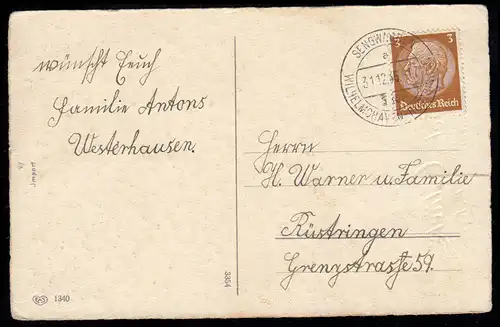 wünscht Euch
Familie Antons
Westerhausen.
Import
1340
3354
SENGWARDEN
a
31.12.
WILHELMSHAVEN
3 3
Deutsches Reich
Herrn
H. Warner u. Familie
Rüstringen
Grenzstrasse 59.